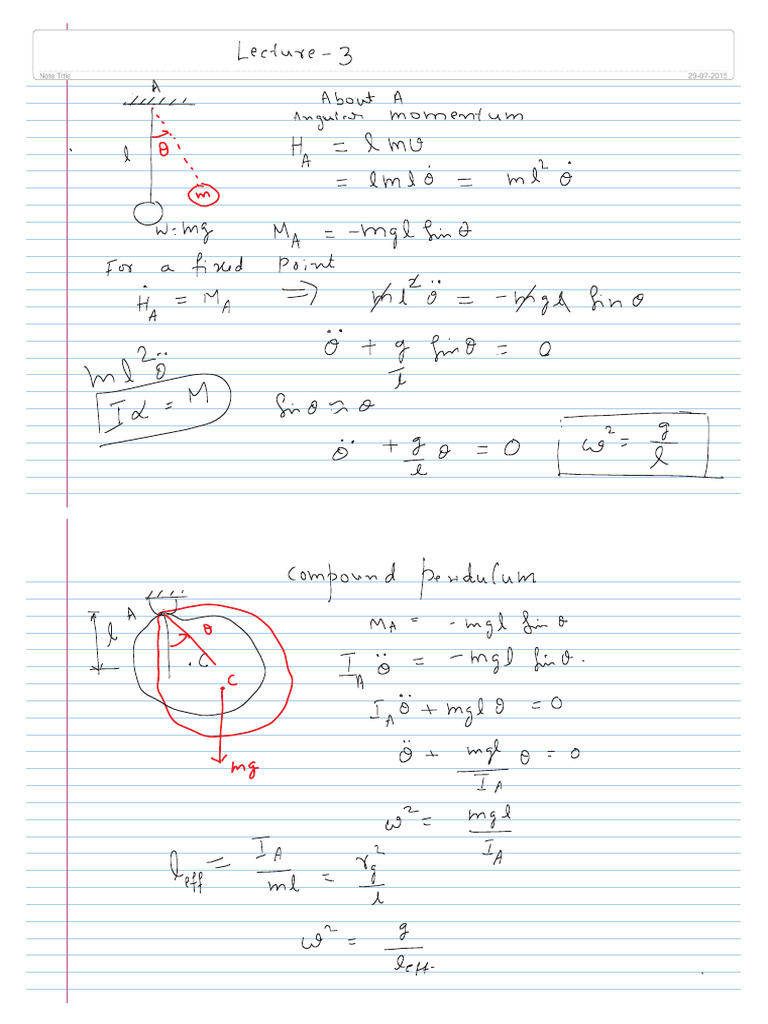 Lecture-3
Note Title
29-07-2015
A
l
θ
m
W=mg
About A
Angular momentum
H_A = lmv
= lmlθ̇ = ml²θ̇
M_A = -mgl Sinθ
For a fixed point
Ḣ_A = M_A ⇒ ml²θ̈ = -mgl Sinθ
θ̈ + g/l Sinθ = 0
ml²θ̈
Iα = M
Sinθ ≈ θ
θ̈ + g/l θ = 0
ω² = g/l
Compound pendulum
A
l
θ
.C
C
mg
M_A = -mgl Sinθ
I_A θ̈ = -mgl Sinθ.
I_A θ̈ + mglθ = 0
θ̈ + mgl/I_A θ = 0
ω² = mgl/I_A
l_eff = I_A/ml = r_g²/l
ω² = g/l_eff.